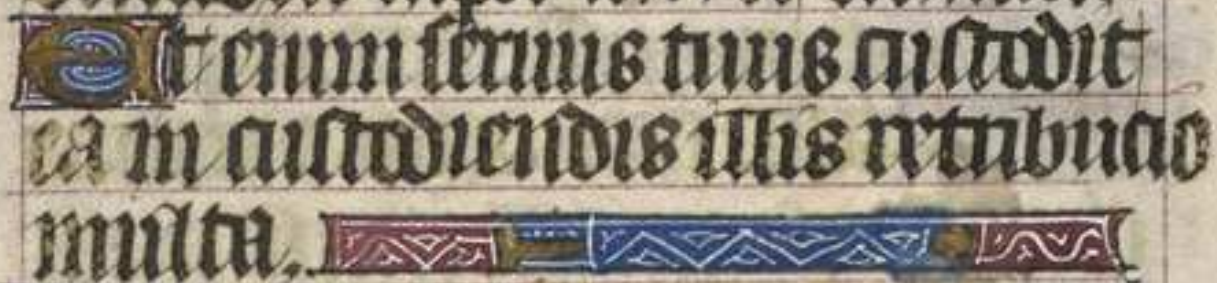 Et enim seruus tuus custodit
ea in custodiendis illis retribucio
multa.